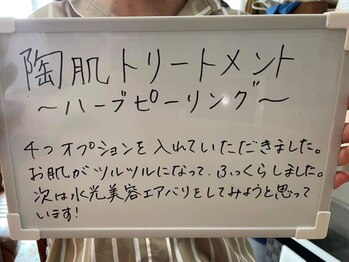 陶肌トリートメント
～ハーブピーリング～
4つオプションを入れていただきました。
お肌がツルツルになって、ふっくらしました。
次は水光美容エアバリをしてみようと思って
います!